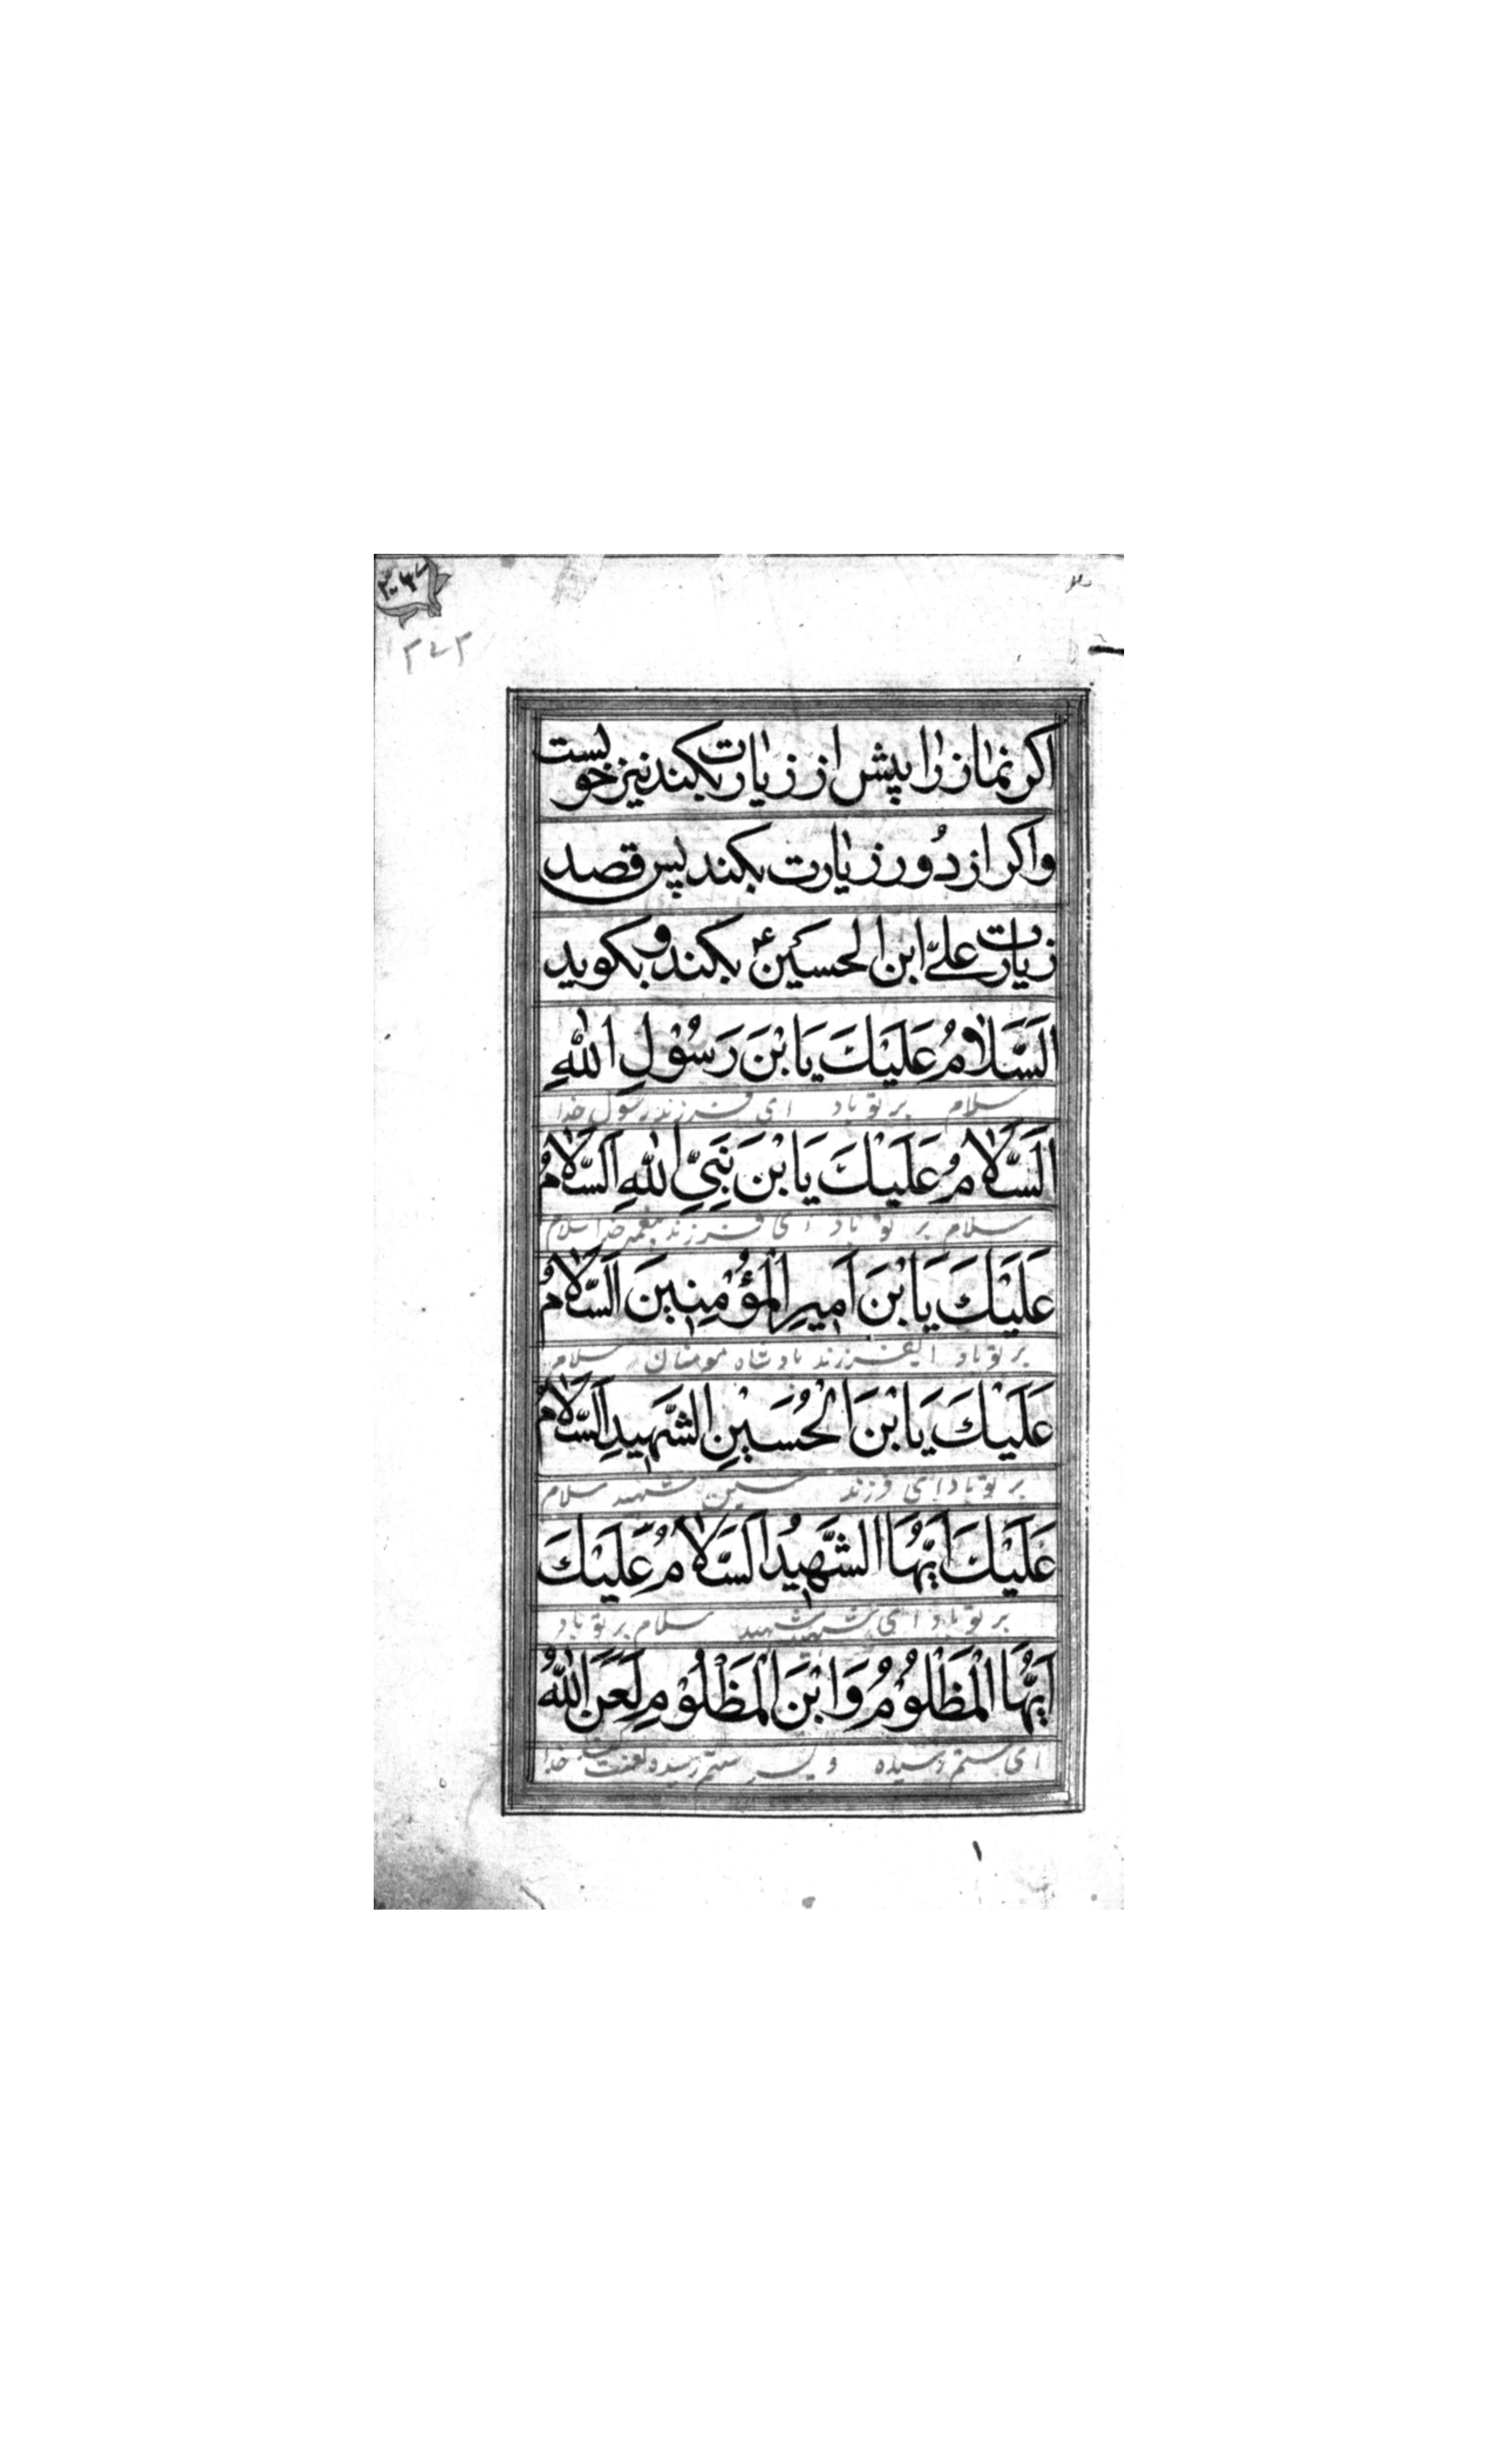 ۳۷۲
اکر نماز را پیش از زیارت بکند نیز خوبست
واکر از دُور زیارت بکند پس قصد
زیارت علیّ ابن الحسین ع بکند و بکوید
اَلسَّلامُ عَلَيْكَ يَا بْنَ رَسُوْلِ اللّٰهِ
سلام بر تو باد ای فرزند رسول خدا
اَلسَّلامُ عَلَيْكَ يَا بْنَ نَبِيِّ اللّٰهِ اَلسَّلامُ
سلام بر تو باد ای فرزند پیغمبر خدا سلام
عَلَيْكَ يَا بْنَ اَمِيرِ الْمُؤْمِنِينَ اَلسَّلامُ
بر تو باد ایفرزند پادشاه مومنان سلام
عَلَيْكَ يَا بْنَ الْحُسَيْنِ الشَّهِيدِ اَلسَّلامُ
بر تو باد ای فرزند حسین شهید سلام
عَلَيْكَ اَيُّهَا الشَّهِيدُ اَلسَّلامُ عَلَيْكَ
بر تو باد ای شهید سلام بر تو باد
اَيُّهَا الْمَظْلُوْمُ وَابْنَ الْمَظْلُوْمِ لَعَنَ اللّٰهُ
ای ستم رسیده و پسر ستم رسیده لعنت خدا
۱